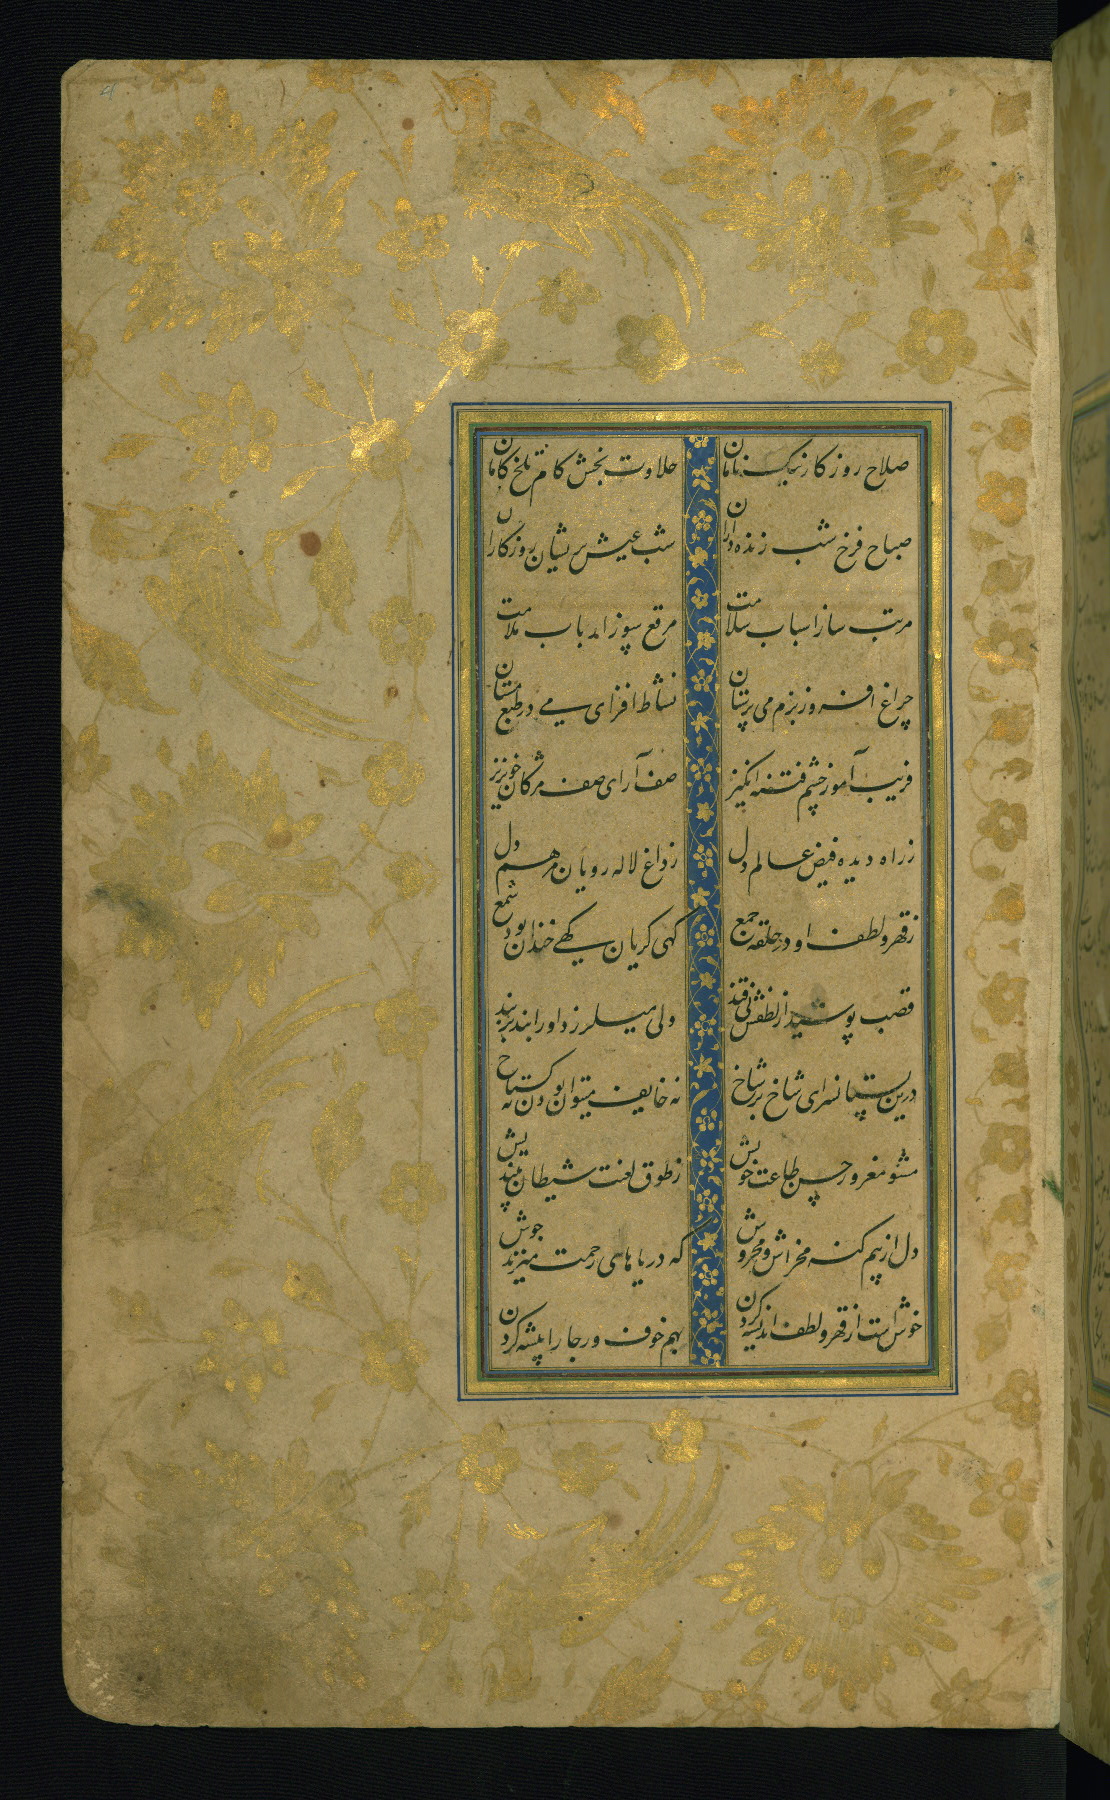 صلاح روزکار نیک نامان
حلاوت بخش کام تلخ کامان
صباح فرخ شب زنده داران
شب عیش پریشان روزکاران
مرتب ساز اسباب سلامت
مرقع سوز ارباب ملامت
چراغ افروز بزم می پرستان
نشاط افزای می در طبع مستان
فریب آموز چشم فتنه انکیز
صف آرای صف مژکان خونریز
ز راه دیده فیض عالم دل
ز داغ لاله رویان مرهم دل
ز قهر و لطف او در حلقه جمع
کهی کریان کهی خندان بود شمع
قصب پوشید از لطفش نی قند
ولی میلرزد او را بند بر بند
درین بستانسرای شاخ بر شاخ
نه خایف میتوان بودن نه کستاخ
مشو مغرور حسن طاعت خویش
ز طوق لعنت شیطان بیندیش
دل از بیم کنه مخراش و مخروش
که دریاهای رحمت میزند جوش
خوش است از قهر و لطف اندیشه کردن
بهم خوف و رجا را پیشه کردن